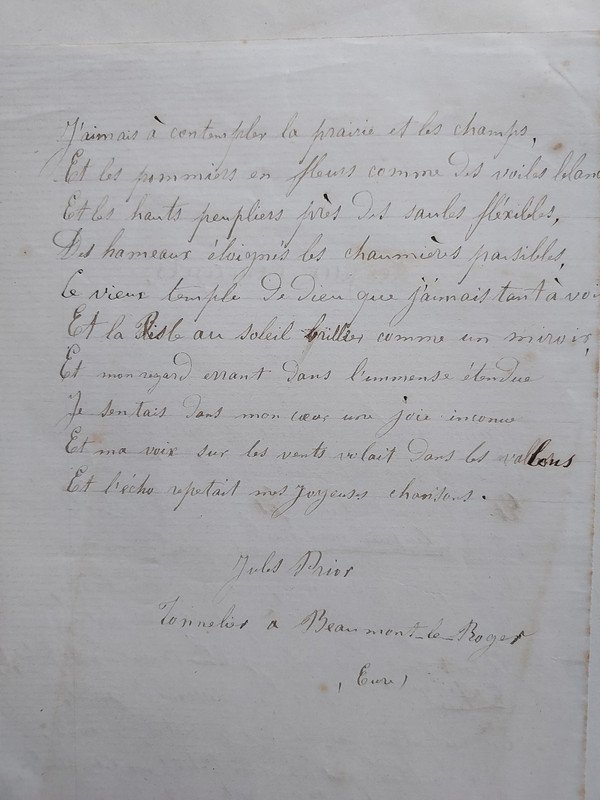 J'aimais à contempler la prairie et les champs,
Et les pommiers en fleurs comme des voiles blanc
Et les hauts peupliers près des saules fléxibles,
Des hameaux éloignés les chaumières paisibles,
Ce vieux temple de Dieu que j'aimais tant à voi
Et la Risle au soleil briller comme un miroir,
Et mon regard errant dans l'immense étendue
Je sentais dans mon cœur une joie inconue
Et ma voix sur les vents volait dans les vallons
Et l'écho repetait mes joyeuses chansons.
Jules Prior
Tonnelier a Beaumont-le-Roger
(Eure)